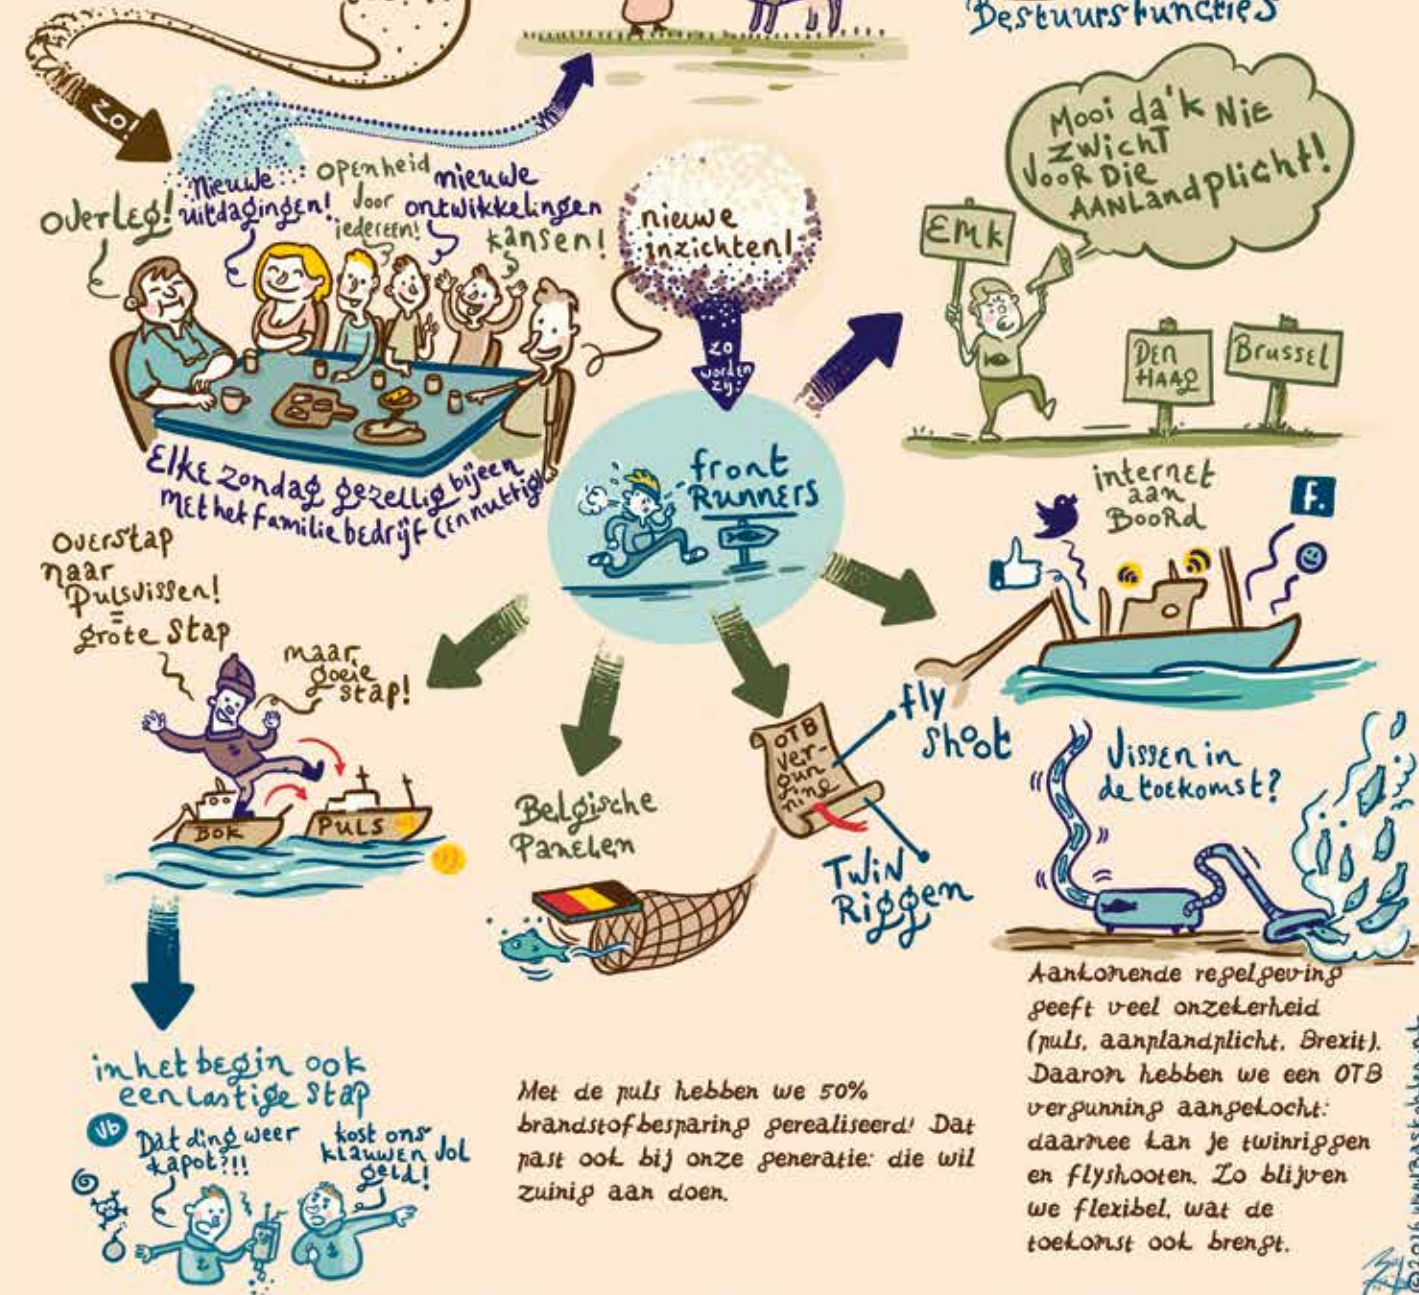 Bestuursfuncties
ZO!
Overleg!
nieuwe
uitdagingen!
openheid
voor
iedereen!
nieuwe
ontwikkelingen
kansen!
nieuwe
inzichten!
zo
worden
zij:
Mooi da'k NIE
zwicht
VOOR DIE
AANLandplicht!
EMK
DEN
HAAG
Brussel
Elke zondag gezellig bijeen
met het familiebedrijf (en nuttig)
front
Runners
internet
aan
BooRd
f.
Overstap
naar
Pulsvissen!
=
grote stap
maar
goeie
stap!
BOK
PULS
Belgische
Panelen
OTB
ver-
gun
ning
fly
shoot
TWIN
Riggen
Vissen in
de toekomst?
in het begin ook
een lastige stap
vb
Dat ding weer
kapot?!!
kost ons
klauwen vol
geld!
Met de puls hebben we 50%
brandstofbesparing gerealiseerd! Dat
past ook bij onze generatie: die wil
zuinig aan doen.
Aankomende regelgeving
geeft veel onzekerheid
(puls, aanplandplicht, Brexit).
Daarom hebben we een OTB
vergunning aangekocht:
daarmee kan je twinriggen
en flyshooten. Zo blijven
we flexibel, wat de
toekomst ook brengt.